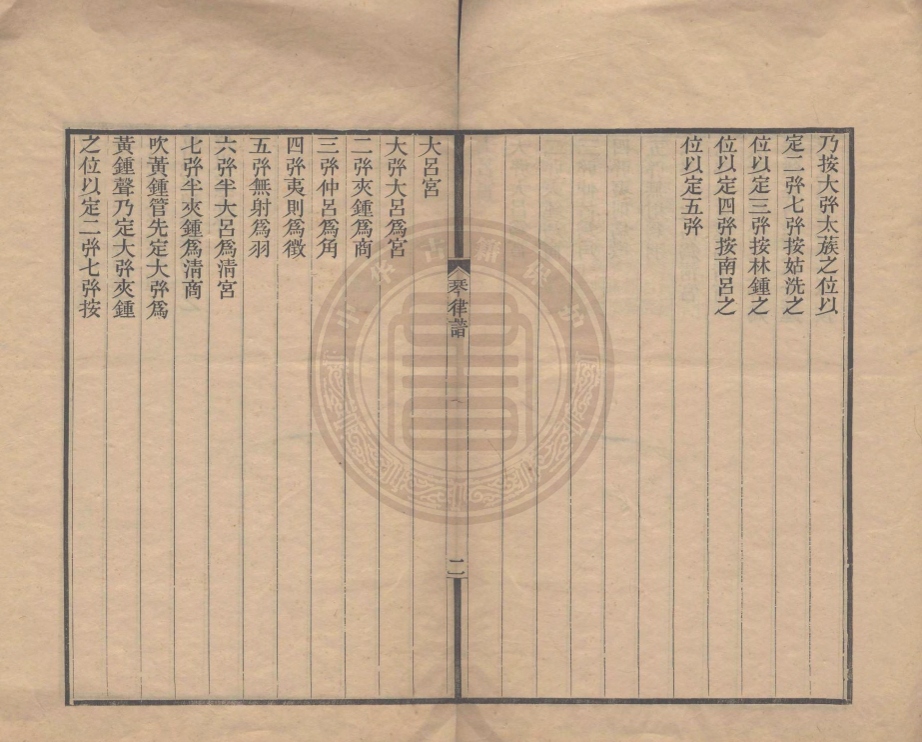 乃按大弻太蔟之位以
定二弻七弻按姑洗之
位以定三弻按林鍾之
位以定四弻按南呂之
位以定五弻
琴律譜
二
大呂宮
大弻大呂爲宮
二弻夾鍾爲商
三弻仲呂爲角
四弻夷則爲徵
五弻無射爲羽
六弻半大呂爲清宮
七弻半夾鍾爲清商
吹黃鍾管先定大弻爲
黃鍾聲乃定大弻夾鍾
之位以定二弻七弻按